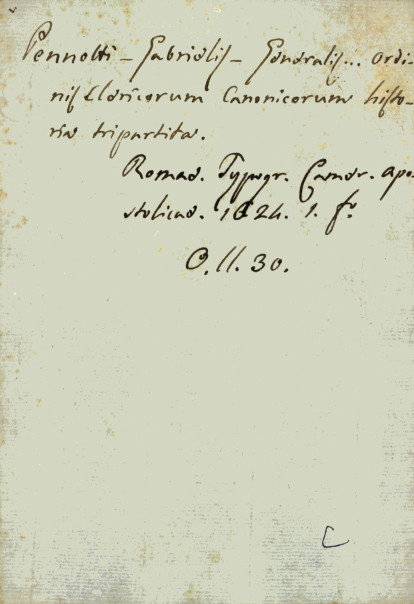 Pennotti - Gabrielis - Generalis... Ordi-
nis Clericorum Canonicorum histo-
ria tripartita.
Romae. Typogr. Camer. Apo-
stolicae. 1624. 1. fo.
O.II.30.